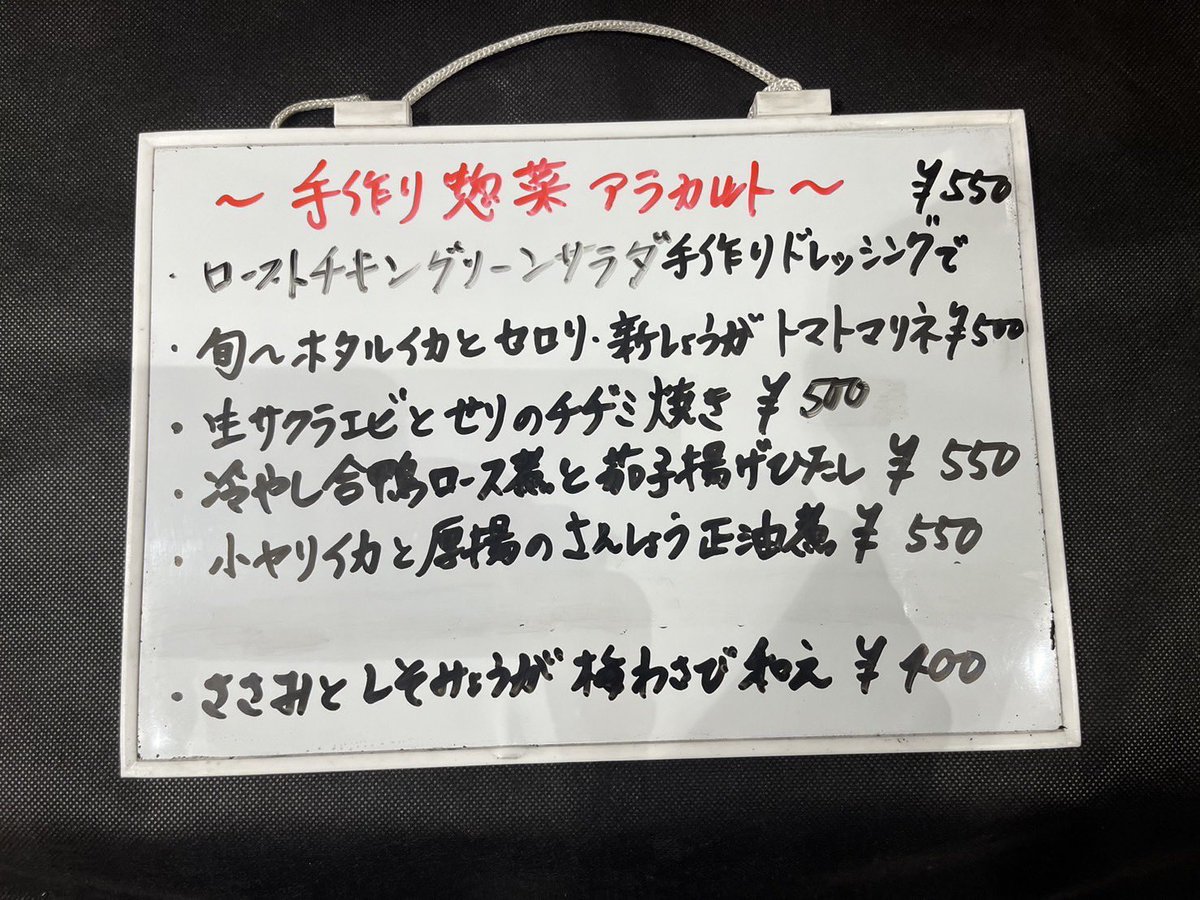 ～手作り惣菜アラカルト～ ¥550
・ローストチキングリーンサラダ手作りドレッシングで
・旬〜ホタルイカとセロリ・新しょうがトマトマリネ¥500
・生サクラエビとせりのチヂミ焼き ¥500
・冷やし合鴨ロース煮と茄子揚げびたし ¥550
・小ヤリイカと厚揚のさんしょう正油煮 ¥550
・ささみとしそみょうが梅わさび和え ¥400